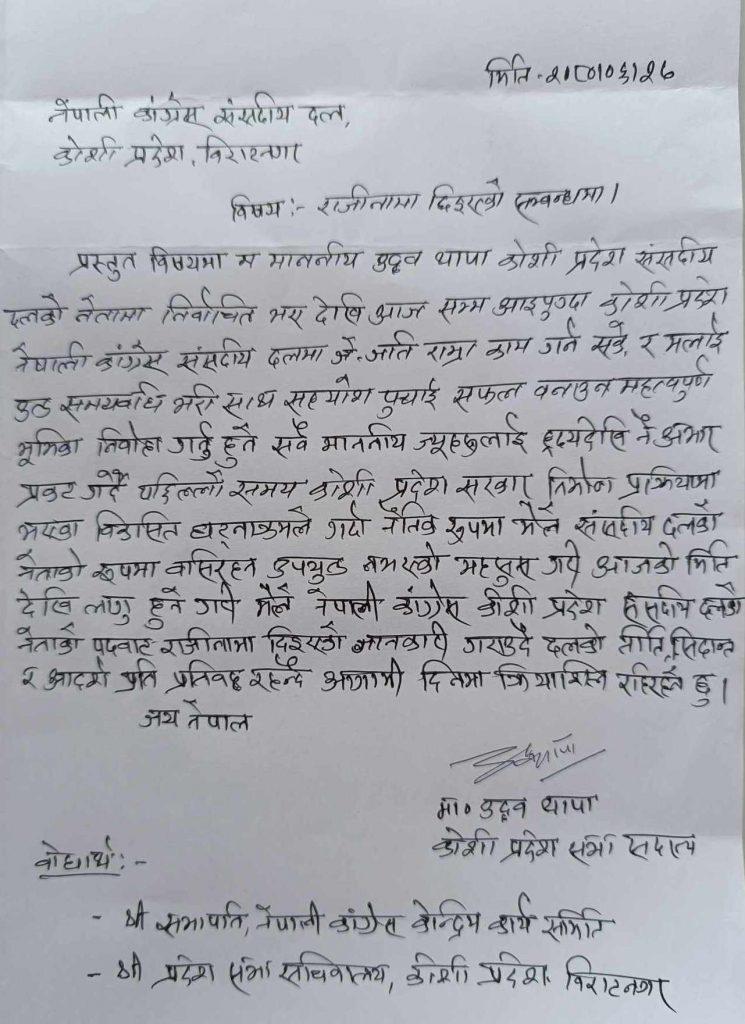 मिति - २०८०।०६।२७
नेपाली कांग्रेस संसदीय दल,
कोशी प्रदेश, विराटनगर
विषय :- राजीनामा दिइएको सम्बन्धमा।
प्रस्तुत विषयमा म माननीय उद्धव थापा कोशी प्रदेश संसदीय
दलको नेतामा निर्वाचित भए देखि आज सम्म आइपुग्दा कोशी प्रदेश
नेपाली कांग्रेस संसदीय दलमा जे-जति राम्रा काम गर्न सकें, र मलाई
उक्त समयावधि भरी साथ सहयोग पुर्याई सफल वनाउन महत्वपुर्ण
भूमिका निर्वाह गर्नु हुने सवै माननीय ज्यूहरुलाई ह्रदयदेखि नै आभार
प्रकट गर्दै पछिल्लो समय कोशी प्रदेश सरकार निर्माण प्रक्रियामा
भएका विकासित घटनाक्रमले गर्दा नैतिक रूपमा मैले संसदीय दलको
नेताको रूपमा वसिरहन उपयुक्त नभएको महसुस गरी आजको मिति
देखि लागु हुने गरी मैले नेपाली कांग्रेस कोशी प्रदेश संसदीय दलको
नेताको पदवाट राजीनामा दिइएको जानकारी गराउदै दलको नीति, सिद्दान्त
र आदर्श प्रति प्रतिवद्द रहन्दै आगामी दिनमा क्रियाशिल रहिरहने छु।
जय नेपाल
मा० उद्धव थापा
कोशी प्रदेश सभा सदस्य
वोधार्थ :-
- श्री सभापति, नेपाली कांग्रेस केन्द्रिय कार्य समिति
- श्री प्रदेश सभा सचिवालय, कोशी प्रदेश विराटनगर